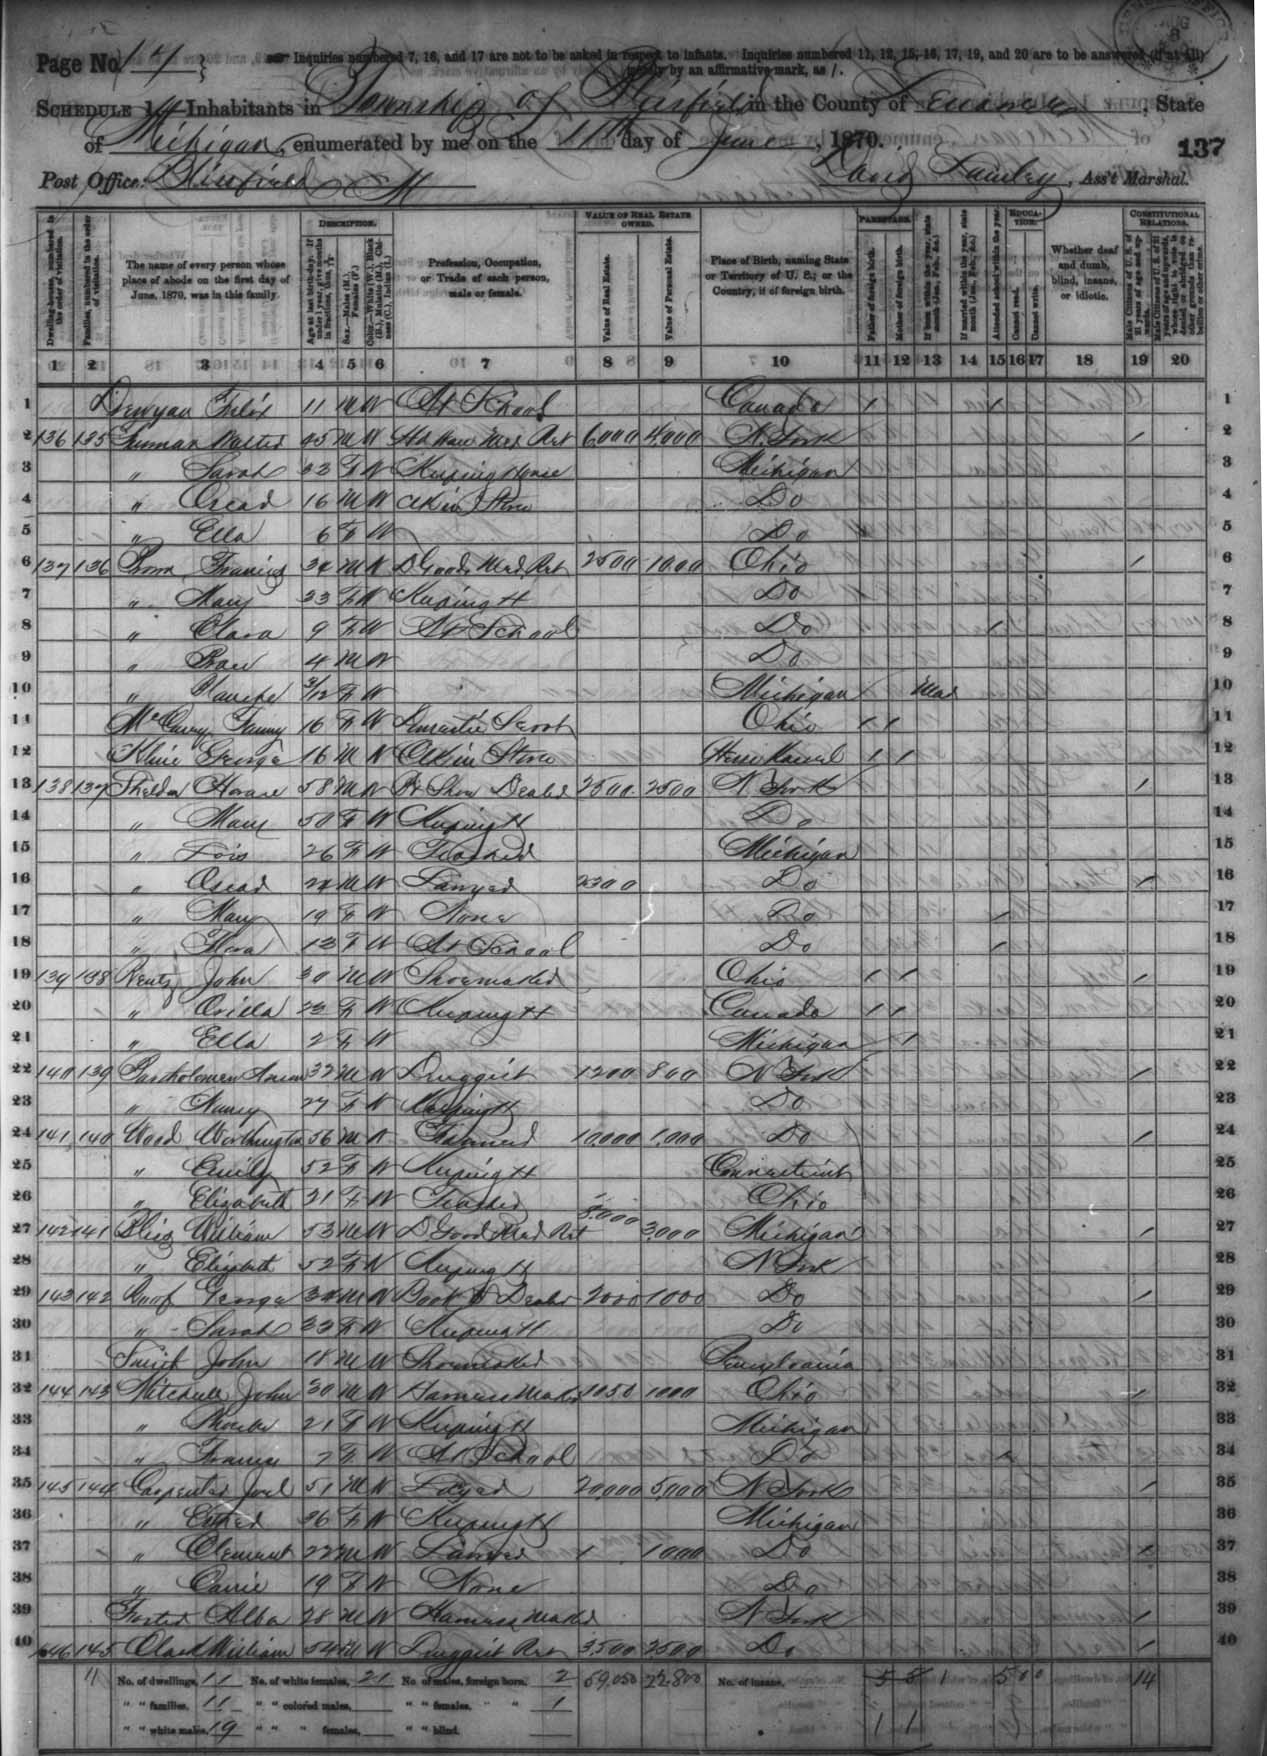 Page No. 14
Inquiries numbered 7, 16, and 17 are not to be asked in respect to infants. Inquiries numbered 11, 12, 15, 16, 17, 19, and 20 are to be answered (if at all)
merely by an affirmative mark, as /.
SCHEDULE 1.—Inhabitants in Township of Blissfield in the County of Lenawee, State
of Michigan, enumerated by me on the 11th day of June, 1870.
137
Post Office: Blissfield M
David, Ass't Marshal.
DESCRIPTION. VALUE OF REAL ESTATE OWNED. PARENTAGE. EDUCATION. CONSTITUTIONAL RELATIONS.
Dwelling-houses, numbered in the order of visitation.
Families, numbered in the order of visitation.
The name of every person whose place of abode on the first day of June, 1870, was in this family.
Age at last birth-day. If under 1 year, give months in fractions, thus, 3/12
Sex.—Males (M.), Females (F.)
Color.—White (W.), Black (B.), Mulatto (M.), Chinese (C.), Indian (I.)
Profession, Occupation, or Trade of each person, male or female.
Value of Real Estate.
Value of Personal Estate.
Place of Birth, naming State or Territory of U. S.; or the Country, if of foreign birth.
Father of foreign birth.
Mother of foreign birth.
If born within the year, state month (Jan., Feb., &c.)
If married within the year, state month (Jan., Feb., &c.)
Attended school within the year.
Cannot read.
Cannot write.
Whether deaf and dumb, blind, insane, or idiotic.
Male Citizens of U. S. of 21 years of age and upwards.
Male Citizens of U. S. of 21 years of age and upwards, whose right to vote is denied or abridged on other grounds than rebellion or other crime.
1 2 3 4 5 6 7 8 9 10 11 12 13 14 15 16 17 18 19 20
1 Felix 11 M W At School Canada / / 1
2 136 135 Walter 45 M W Hd Ware Mer Ret 6,000 4,000 N. York / 2
3 " Sarah 33 F W Keeping House Michigan 3
4 " Oscar 16 M W Clk in Store Do 4
5 " Ella 6 F W Do 5
6 137 136 Francis 34 M W D Goods Merd Ret 2500 1000 Ohio / 6
7 " Mary 33 F W Keeping H Do 7
8 " Clara 9 F W At School Do / 8
9 " 4 M W Do 9
10 " 3/12 F W Michigan Mar 10
11 Fanny 16 F W Domestic Servt Ohio / / 11
12 Kline George 16 M W Clk in Store / / 12
13 138 137 Shelden Horace 58 M W Bt Shoe Dealer 2500 2500 N. York / 13
14 " Mary 50 F W Keeping H Do 14
15 " Lois 26 F W Teacher Michigan 15
16 " Oscar 24 M W Lawyer 2300 Do / 16
17 " Mary 19 F W None Do / 17
18 " Flora 13 F W At School Do / 18
19 139 138 Rentz John 30 M W Shoemaker Ohio / / / 19
20 " Orilla 23 F W Keeping H Canada / / 20
21 " Ella 2 F W Michigan / 21
22 140 139 Bartholomew 32 M W Druggist 1200 800 N York / 22
23 " Nancy 27 F W Keeping H Do 23
24 141 140 Wood Worthington 56 M W Farmer 10,000 1,000 Do / 24
25 " Emily 52 F W Keeping H Connecticut 25
26 " Elizabeth 21 F W Teacher Ohio 26
27 142 141 Bliss William 53 M W D Good Merd Ret 8,000 3,000 Michigan / 27
28 " Elizabeth 52 F W Keeping H N York 28
29 143 142 George 34 M W Boot & Dealer 2000 1000 Do / 29
30 " Sarah 33 F W Keeping H Do 30
31 Smith John 18 M W Shoemaker Pennsylvania 31
32 144 143 Mitchell John 30 M W Harness Maker 1050 1000 Ohio / 32
33 " Phoebe 21 F W Keeping H Michigan 33
34 " Frances 7 F W At School Do / 34
35 145 144 Carpenter Joel 51 M W 20,000 5,000 N York / 35
36 " Esther 36 F W Keeping H Michigan 36
37 " Clement 22 M W Lawyer 1000 Do / 37
38 " Carrie 19 F W None Do 38
39 Foster Alba 28 M W Harness Maker N York / 39
40 146 145 Clark William 54 M W Druggist Ret 3,500 2500 Do / 40
11 No. of dwellings, 11 No. of white females, 21 No. of males, foreign born, 2 59,050 22,800 No. of insane, 5 8 1 5 0 0 14
" " families, 11 " " colored males, " " females, " " 1
" " white males, 19 " " " females, " " blind. 1 1